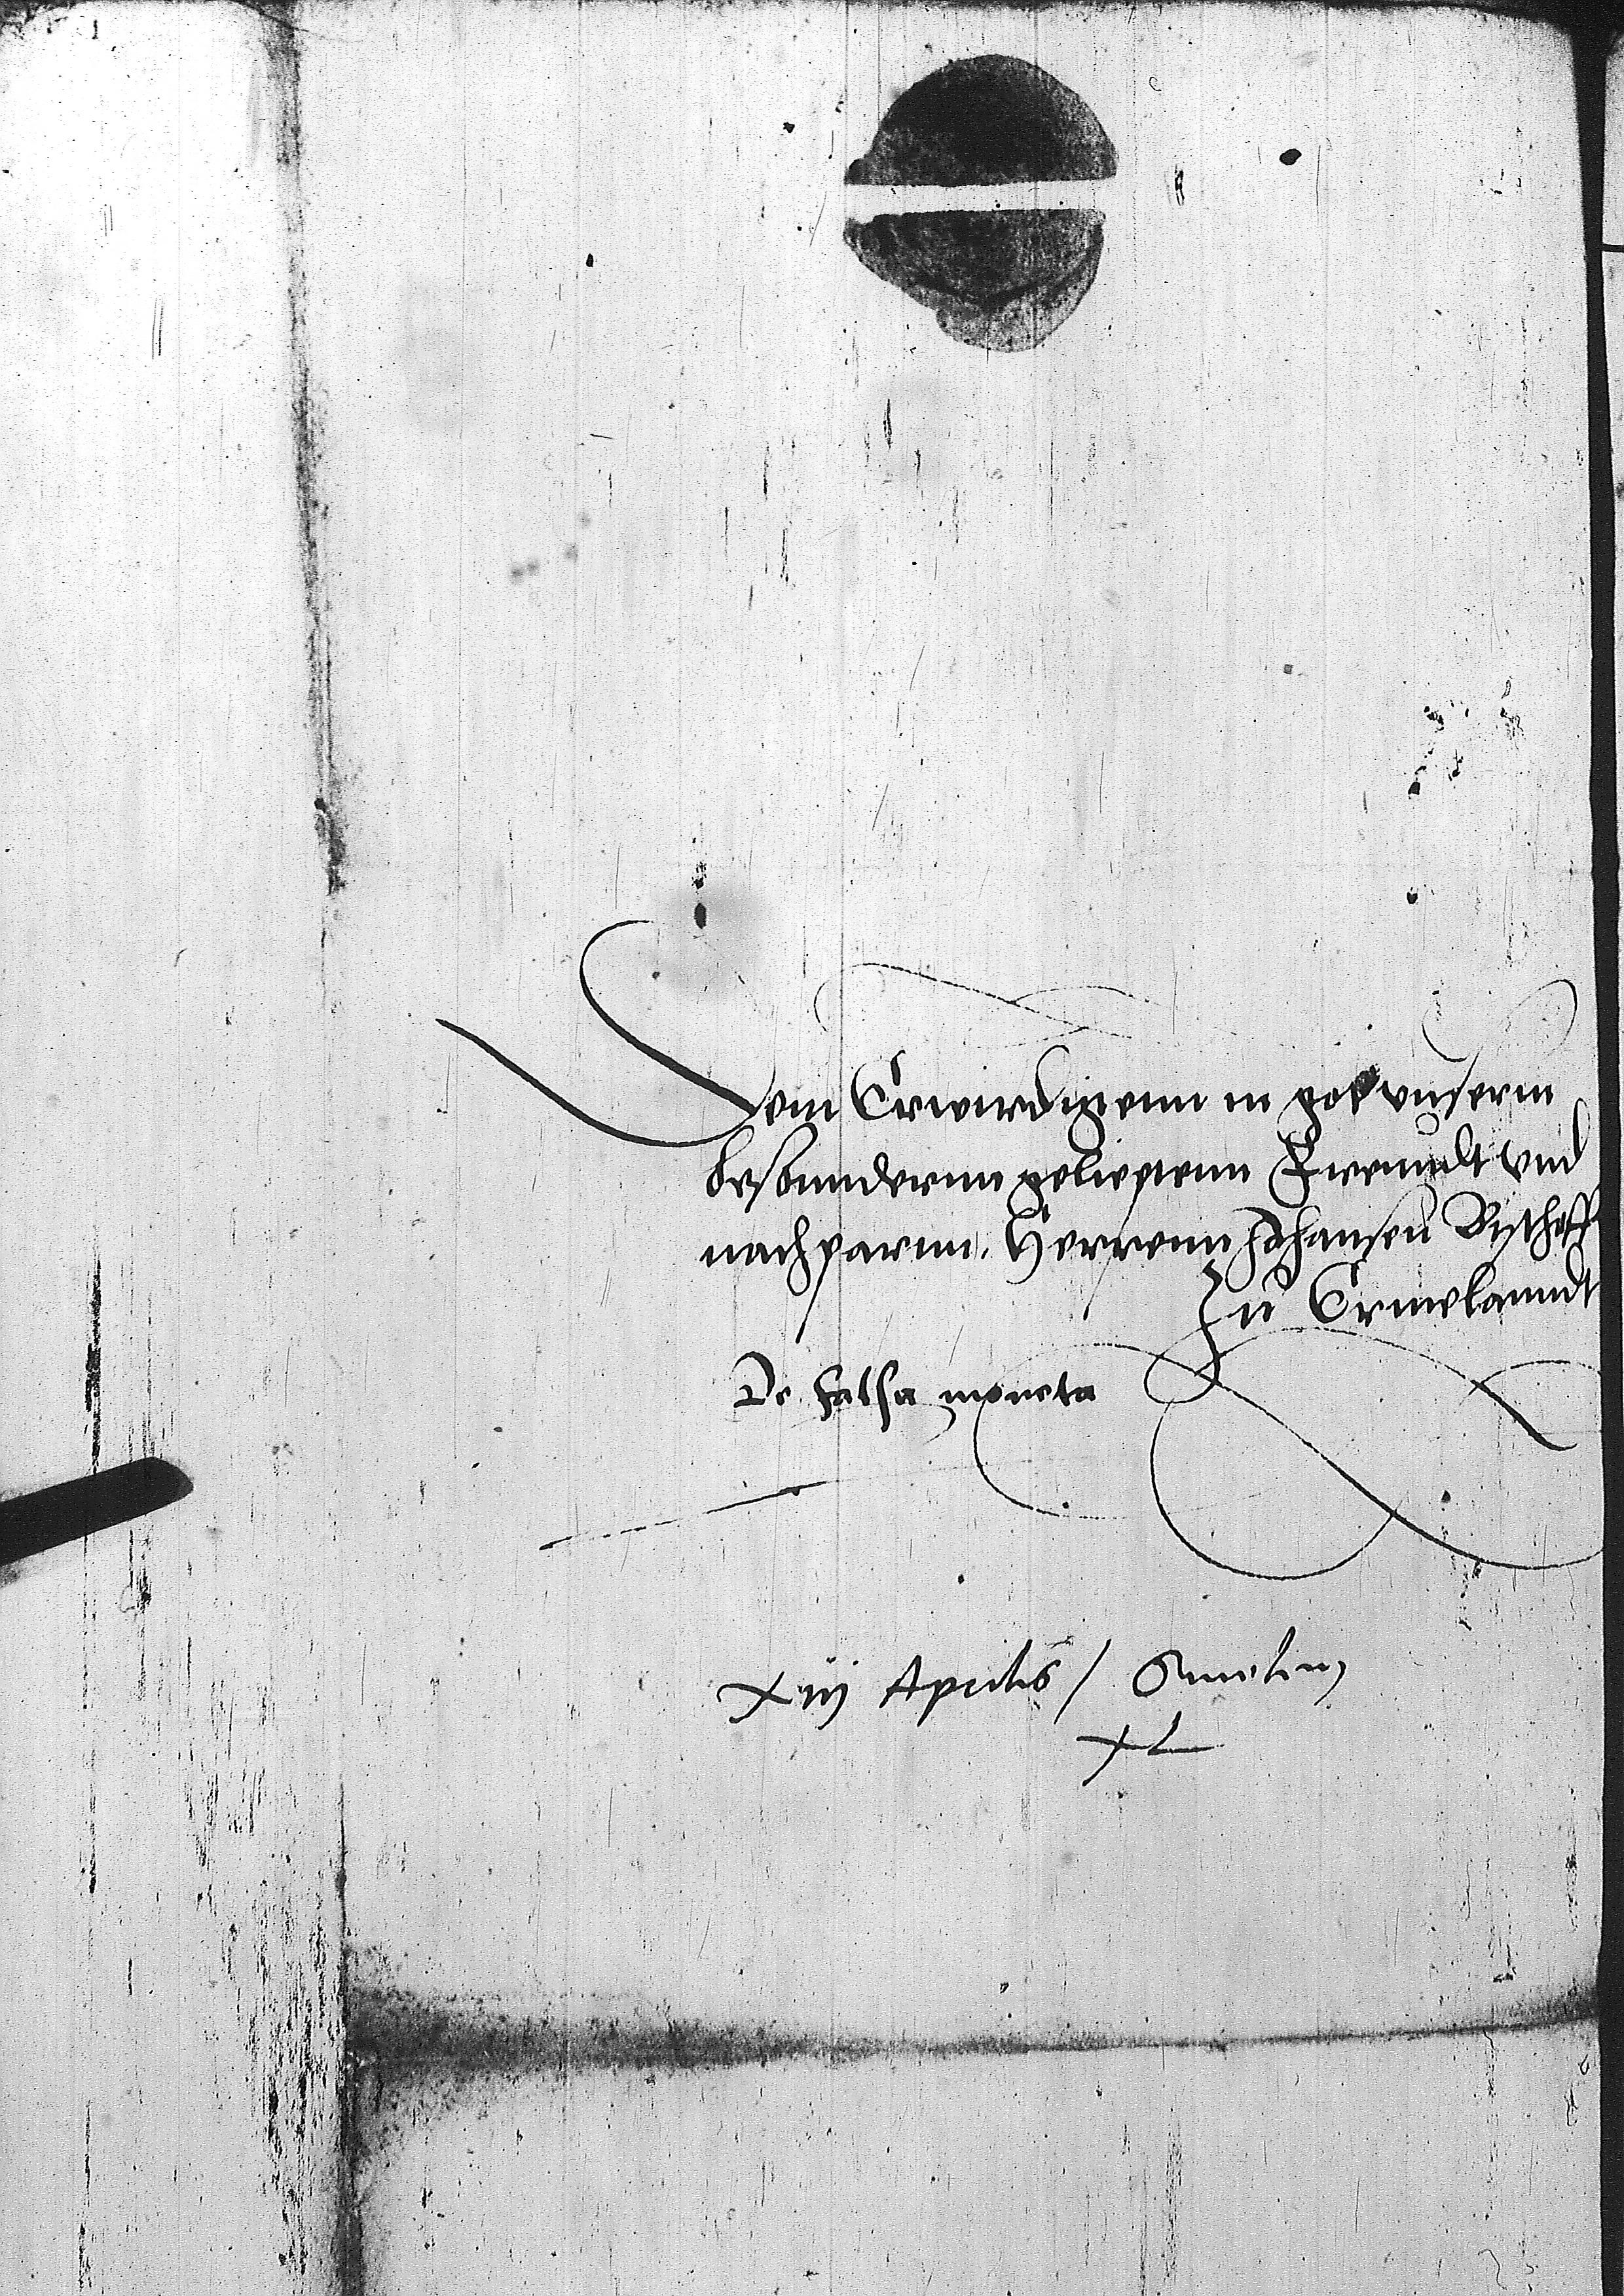 Dem Erwirdigenn in got vnserm
besounndernn geliepten Freundt vnd
nachparnn. Herrenn Johansen Bischoff
zu Ermelanndt
De falsa moneta
xiij Aprilis /
xL